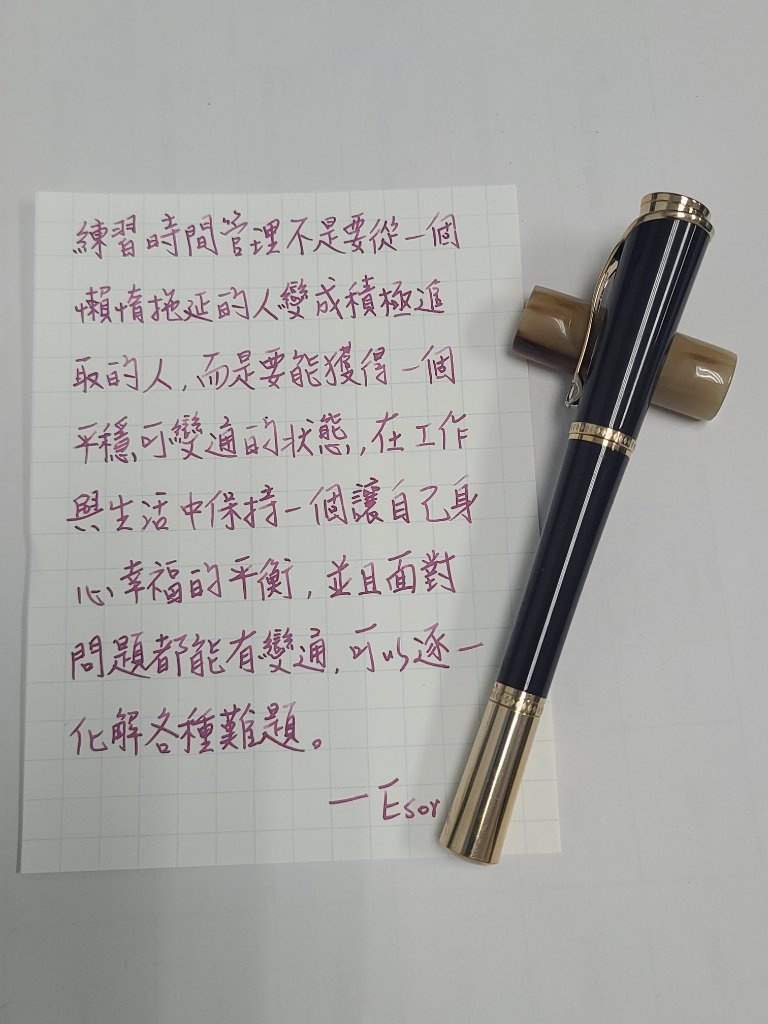 練習時間管理不是要從一個
懶惰拖延的人變成積極進
取的人,而是要能獲得一個
平穩可變通的狀態,在工作
與生活中保持一個讓自己身
心幸福的平衡,並且面對
問題都能有變通,可以逐一
化解各種難題。
—Esor